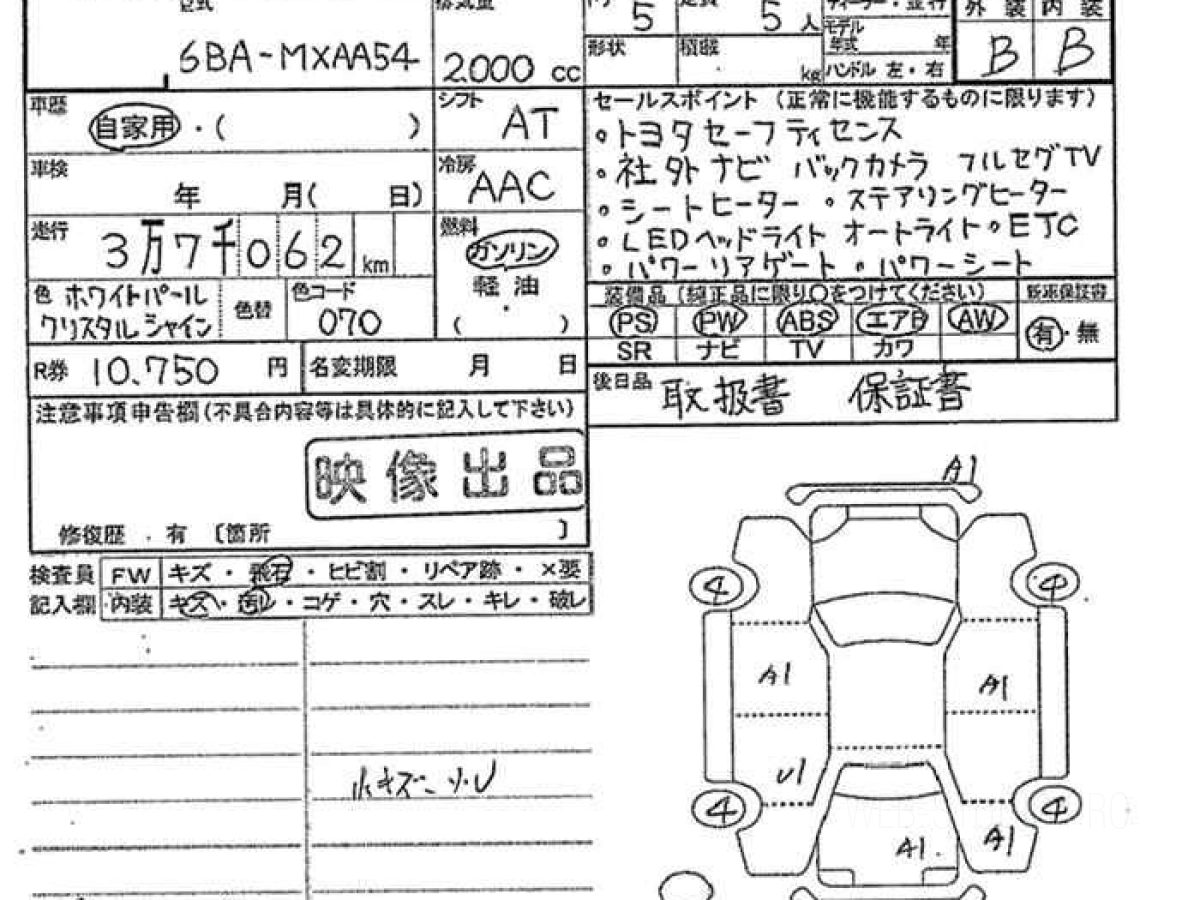 型式 排気量
6BA-MXAA54
2000 cc
5
5人
モデル
年式 年
外装 内装
形状 積載
kg ハンドル 左・右
B B
車歴
自家用・( )
シフト
AT
セールスポイント (正常に機能するものに限ります)
・トヨタセーフティセンス
・社外ナビ バックカメラ フルセグTV
・シートヒーター ・ステアリングヒーター
・LEDヘッドライト オートライト・ETC
・パワーリアゲート ・パワーシート
車検
年 月( 日)
冷房
AAC
走行
3万7千062 km
燃料
ガソリン
・
軽油
( )
色 ホワイトパール
クリスタルシャイン
色替
色コード
070
装備品 (純正品に限り○をつけてください) 新車保証書
PS PW ABS エアB AW
有・無
SR ナビ TV カワ
R券 10.750 円
名変期限 月 日
後日品 取扱書 保証書
注意事項申告欄(不具合内容等は具体的に記入して下さい)
映像出品
修復歴 . 有 〔箇所 〕
検査員
記入欄
FW キズ・飛石・ヒビ割・リペア跡・×要
内装 キズ・汚レ・コゲ・穴・スレ・キレ・破レ
A1
4 4
A1 A1
U1
4 4
A1. A1